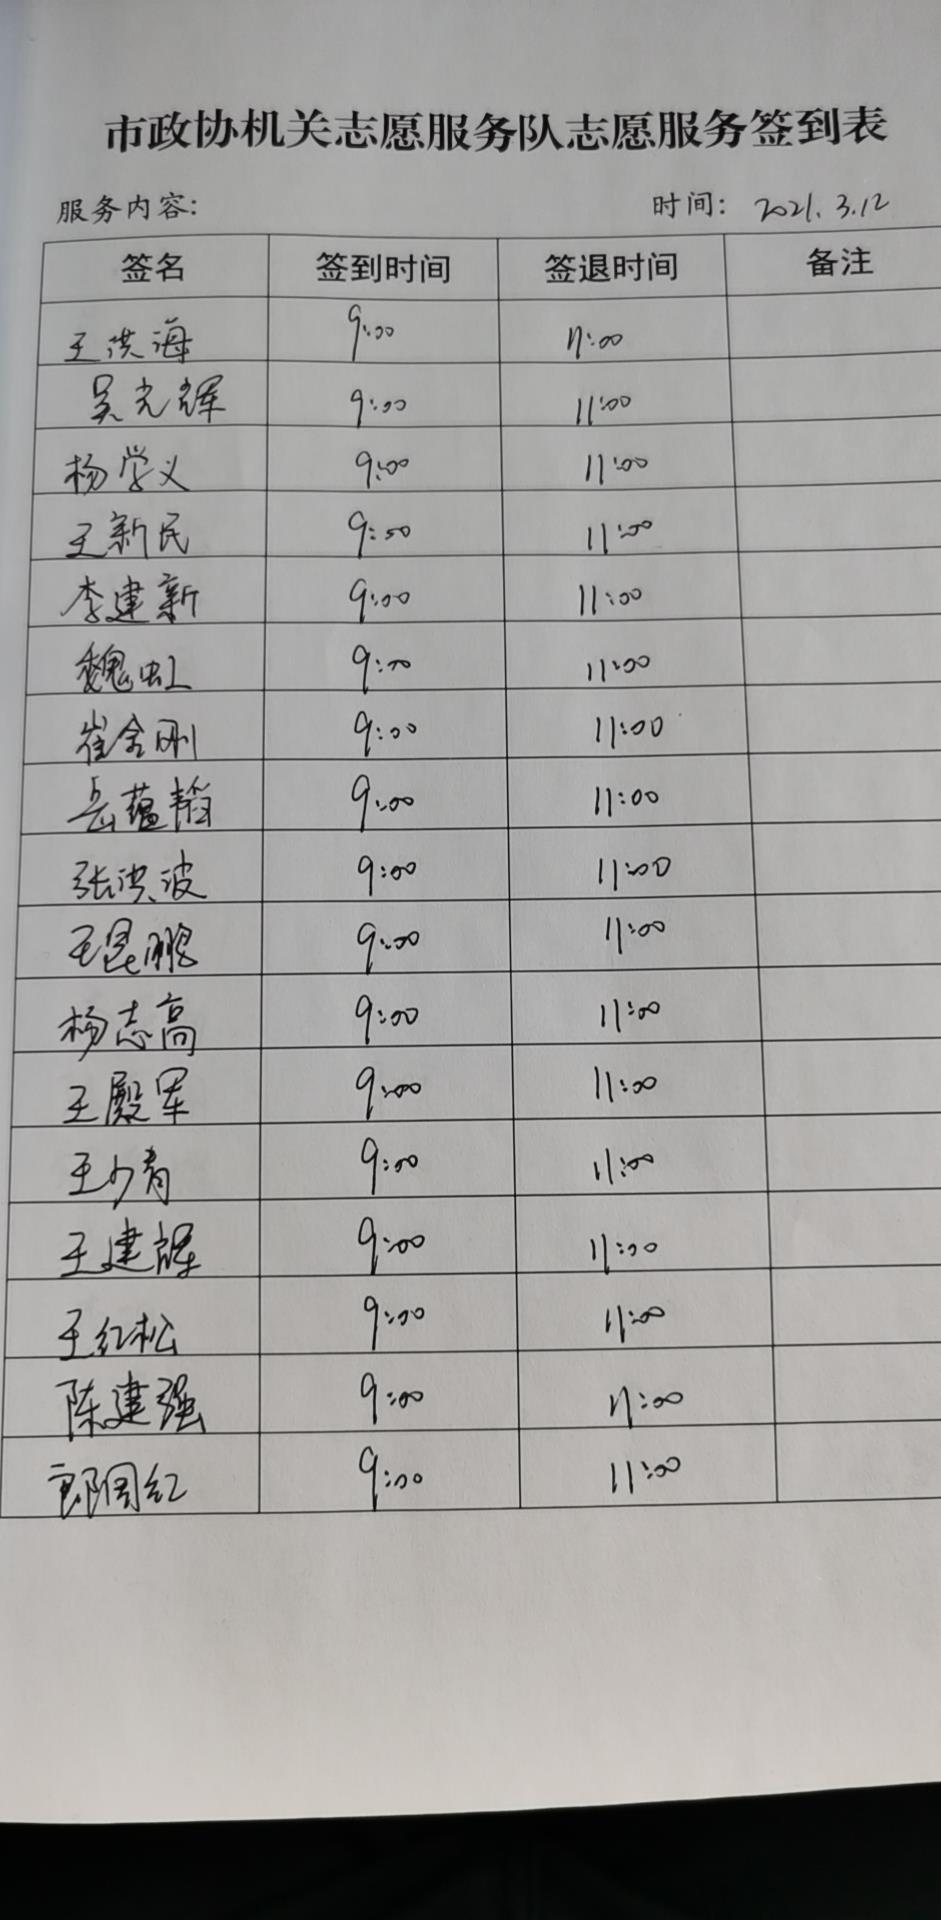 市政协机关志愿服务队志愿服务签到表
服务内容： 时间：2021.3.12
签名 签到时间 签退时间 备注
王洪海 9:00 11:00
吴光辉 9:00 11:00
杨学义 9:00 11:00
王新民 9:00 11:00
李建新 9:00 11:00
魏虹 9:00 11:00
崔金刚 9:00 11:00
岳蕴韬 9:00 11:00
张洪波 9:00 11:00
王昆鹏 9:00 11:00
杨志高 9:00 11:00
王殿军 9:00 11:00
王少青 9:00 11:00
王建辉 9:00 11:00
王红松 9:00 11:00
陈建强 9:00 11:00
郎国红 9:00 11:00